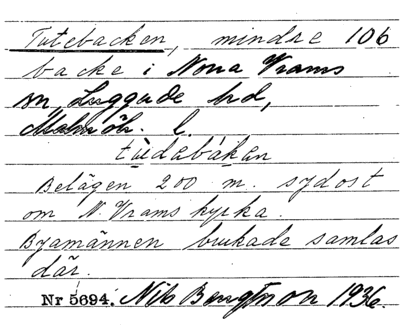 Tutebacken, mindre 106
backe i Norra Vrams
sn, Luggude hd,
Malmöh. l.
tùdabákan
Belägen 200 m. sydost
om N. Vrams kyrka.
Byamännen brukade samlas
där.
Nr 5694. Nils Bengtsson 1936.